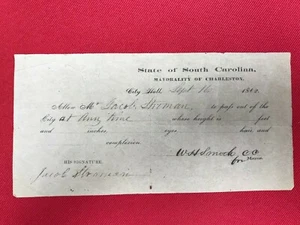 State of South Carolina,
MAYORALITY OF CHARLESTON,
City Hall, Sept 16 186
Allow Mr Jacob to pass out of the
City at Any time whose height is feet
and inches eyes hair, and
complexion.
W H Smith, C C
for Mayor.
HIS SIGNATURE,
Jacob